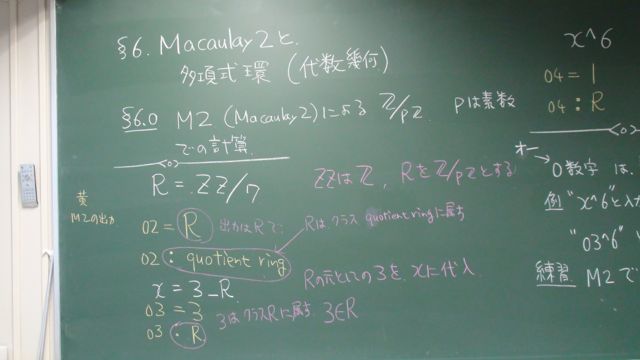 §6. Macaulay2と
多項式環 (代数幾何)
§6.0 M2 (Macaulay2)による ℤ/pℤ pは素数
での計算.
R = ZZ/7
ZZはℤ, Rをℤ/pℤとする
黄
M2の出力
o2 = R 出力はRで
Rは、クラス quotient ringに属す
o2 : quotient ring
x = 3_R
Rの元としての3を、xに代入
o3 = 3
3はクラスRに属す. 3∈R
o3 : R
x^6
o4 = 1
o4 : R
オー
0数字 は、
例 "x^6"と入
"o3^6"
練習. M2で